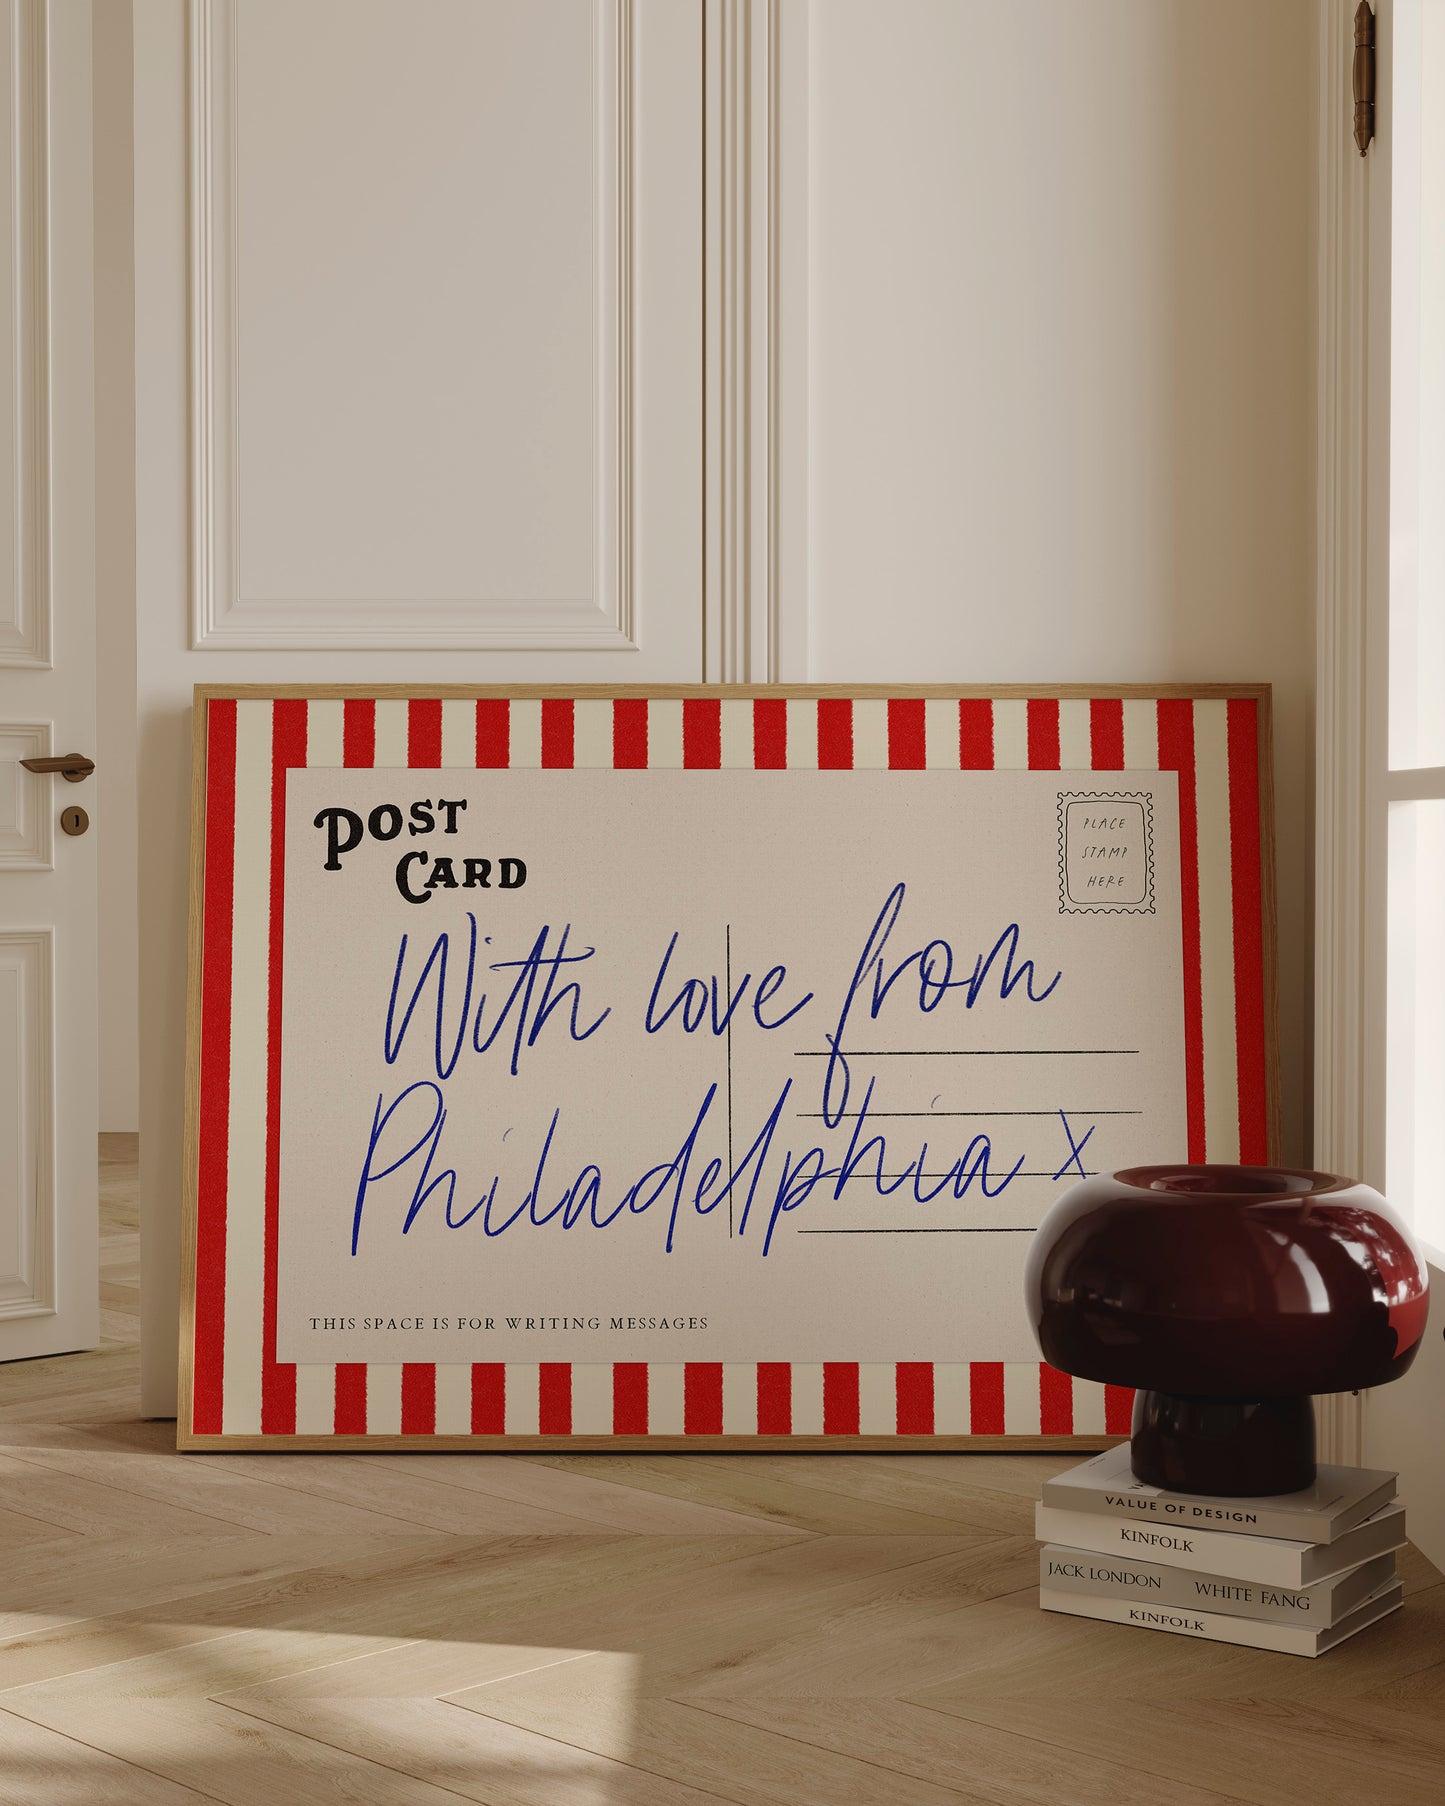 POST
CARD
PLACE
STAMP
HERE
With love from
Philadelphia x
THIS SPACE IS FOR WRITING MESSAGES
VALUE OF DESIGN
KINFOLK
JACK LONDON WHITE FANG
KINFOLK